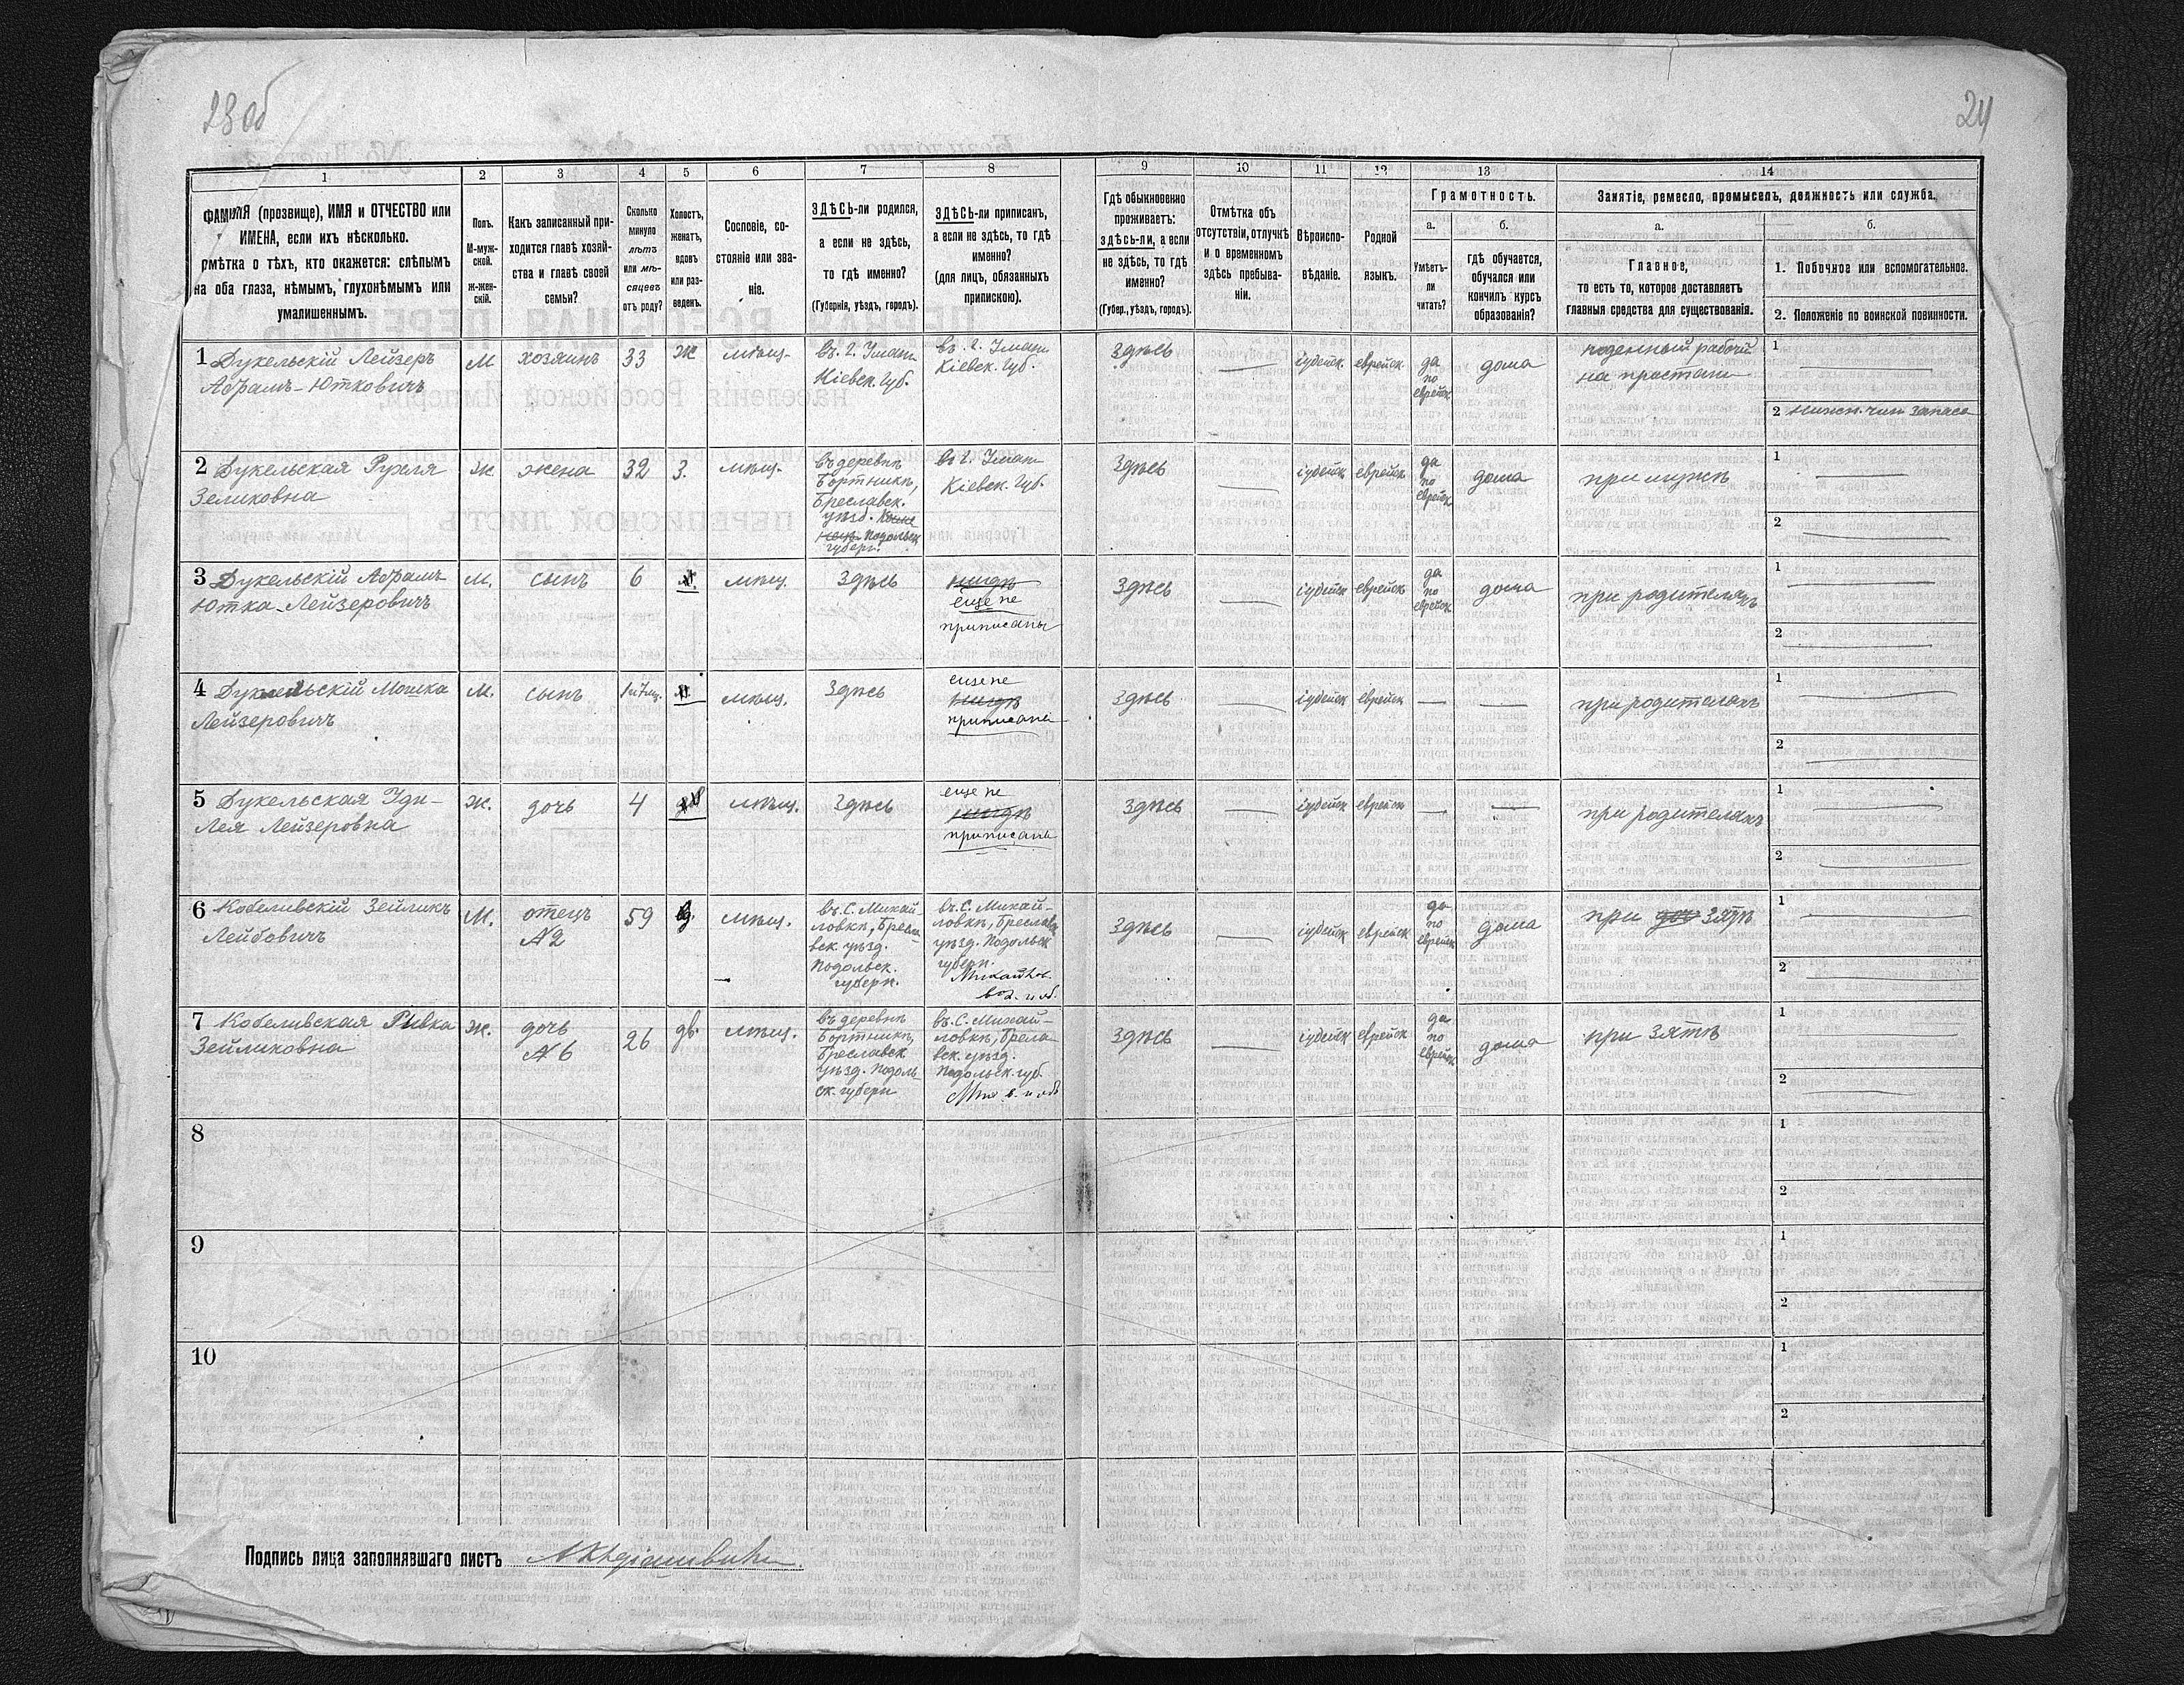 23 об
24
1
2
3
4
5
6
7
8
9
10
11
12
13
14
ФАМИЛІЯ (прозвище), ИМЯ и ОТЧЕСТВО или
ИМЕНА, если ихъ нѣсколько.
Отмѣтка о тѣхъ, кто окажется: слѣпымъ
на оба глаза, нѣмымъ, глухонѣмымъ или
умалишеннымъ.
Полъ.
М-муж-
ской.
ж-жен-
скій.
Какъ записанный при-
ходится главѣ хозяй-
ства и главѣ своей
семьи?
Сколько
минуло
лѣтъ
или мѣ-
сяцевъ
отъ роду?
Холостъ,
женатъ,
вдовъ
или раз-
веденъ.
Сословіе, со-
стояніе или зва-
ніе.
ЗДѢСЬ-ли родился,
а если не здѣсь,
то гдѣ именно?
(Губернія, уѣздъ, городъ).
ЗДѢСЬ-ли приписанъ,
а если не здѣсь, то гдѣ
именно?
(для лицъ, обязанныхъ
припискою).
Гдѣ обыкновенно
проживаетъ:
здѣсь-ли, а если
не здѣсь, то гдѣ
именно?
(Губер., уѣздъ, городъ).
Отмѣтка объ
отсутствіи, отлучкѣ
и о временномъ
здѣсь пребыва-
ніи.
Вѣроиспо-
вѣданіе.
Родной
языкъ.
Грамотность.
а.
Умѣетъ-
ли
читать?
б.
гдѣ обучается,
обучался или
кончилъ курсъ
образованія?
Занятіе, ремесло, промыселъ, должность или служба.
а.
Главное,
то есть то, которое доставляетъ
главныя средства для существованія.
б.
1. Побочное или вспомогательное.
2. Положеніе по воинской повинности.
1 Дукельскій Лейзеръ
Абрамъ-Ютковичъ
М
хозяинъ
33
Ж
мѣщ.
въ г. Уманъ
Кіевск. губ.
въ г. Уманъ
Кіевск. губ.
Здѣсь
іудейск.
еврейск
да
по
еврейск
дома
поденный рабочій
на пристани
1
2 нижн. чин запаса
2 Дукельская Рухля
Зеликовна
Ж.
жена
32
З.
мѣщ.
въ деревнѣ
Бортникѣ,
Бреславск.
уѣзд.
Подольск
губерн.
въ г. Уманъ
Кіевск. губ.
Здѣсь
іудейск
еврейск
да
по
еврейск
дома
при мужѣ
1
2
3 Дукельскій Абрамъ
Ютка-Лейзеровичъ
М.
сынъ
6
мѣщ.
Здѣсь
нигдѣ
еще не
приписаны
Здѣсь
іудейск
еврейск
да
по
еврейск
дома
при родителяхъ
1
2
4 Дукельскій Мошка
Лейзеровичъ
М.
сынъ
мѣщ.
Здѣсь
еще не
нигдѣ
приписаны
Здѣсь
іудейск
еврейск
при родителяхъ
1
2
5 Дукельская
Лея Лейзеровна
Ж.
дочь
4
мѣщ.
Здѣсь
еще не
нигдѣ
приписаны
Здѣсь
іудейск
еврейск
при родителяхъ
1
2
6 Кобеливскій Зейликъ
Лейбовичъ
М.
отецъ
№2
59
мѣщ.
въ с. Михай-
ловкѣ, Бресла-
вск. уѣзд.
Подольск.
губерн.
въ с. Михай-
ловкѣ, Бреславск
уѣзд. Подольск
губерн.
Здѣсь
іудейск
еврейск
да
по
еврейск
дома
при зятѣ
1
2
7 Кобеливская Ривка
Зейликовна
Ж.
дочь
№6
26
дѣ.
мѣщ.
въ деревнѣ
Бортникѣ,
Бреславск
уѣзд. Подоль-
ск. губерн
въ с. Михай-
ловкѣ, Бресла-
вск. уѣзд.
Подольск. губ.
Здѣсь
іудейск
еврейск
да
по
еврейск
дома
при зятѣ
1
2
8
1
2
9
1
2
10
1
2
Подпись лица заполнявшаго листъ